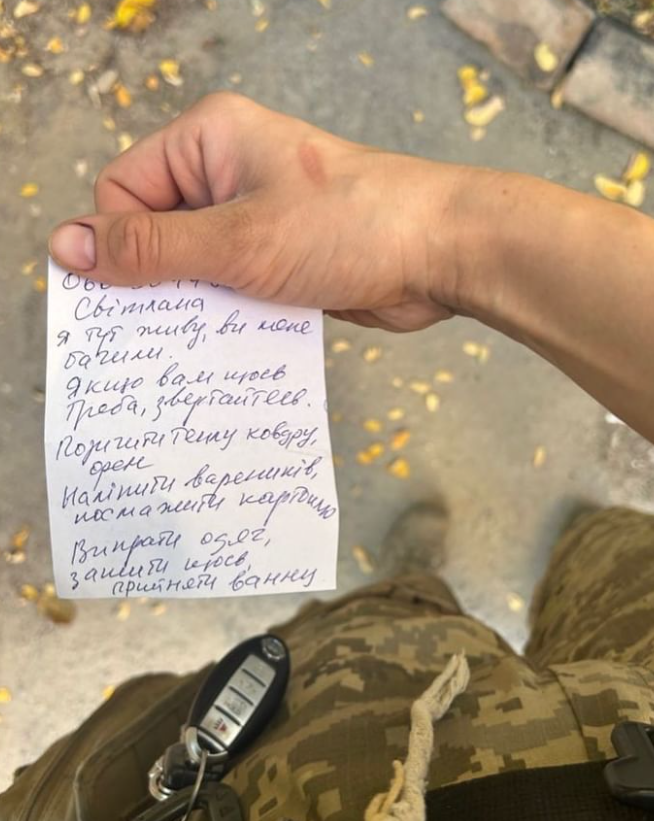 Світлана
я тут живу, ви мене
бачили.
Якщо вам щось
Треба, звертайтесь.
Позичити теплу ковдру,
фен
Наліпити вареників,
посмажити картоплю
Випрати одяг,
зашити щось,
прийняти ванну